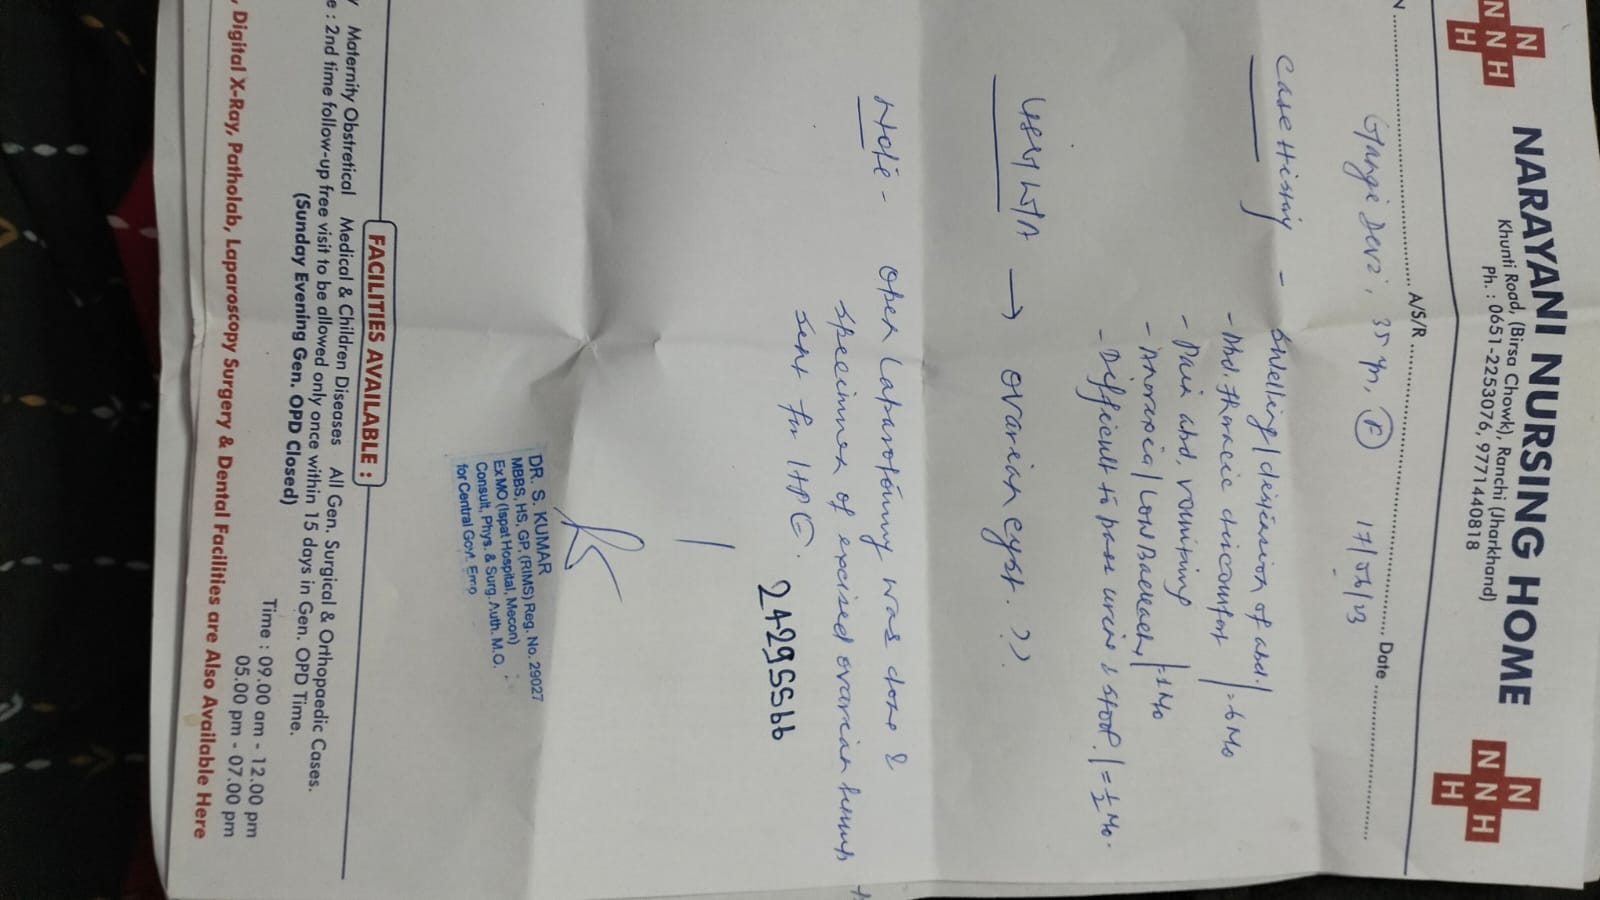 N
N N H
H
NARAYANI NURSING HOME
Khunti Road, (Birsa Chowk), Ranchi (Jharkhand)
Ph. : 0651-2253076, 9771440818
N
N N H
H
N .................... A/S/R .................... Date ....................
Devi, 35 yr, F 17/06/13
Case History - Swelling / distension of abd.
- Abd. thoracic discomfort = 6 Mo
- Pain abd, vomiting
- Anorexia / Low Backache = 1 Mo
- Difficult to pass urine & stool. = ½ Mo.
USG W/A → ovarian cyst. ??
Note - Open Laparotomy was done &
specimen of excised ovarian
sent for HPE.
2429SS66
DR. S. KUMAR
MBBS, HS, GP, (RIMS) Reg. No. 29027
Ex MO (Ispat Hospital, Mecon)
Consult, Phys. & Surg. Auth. M.O.
for Central Govt. Emp
FACILITIES AVAILABLE :
Maternity Obstretical Medical & Children Diseases All Gen. Surgical & Orthopaedic Cases.
e : 2nd time follow-up free visit to be allowed only once within 15 days in Gen. OPD Time.
(Sunday Evening Gen. OPD Closed)
Time : 09.00 am - 12.00 pm
05.00 pm - 07.00 pm
, Digital X-Ray, Patholab, Laparoscopy Surgery & Dental Facilities are Also Available Here